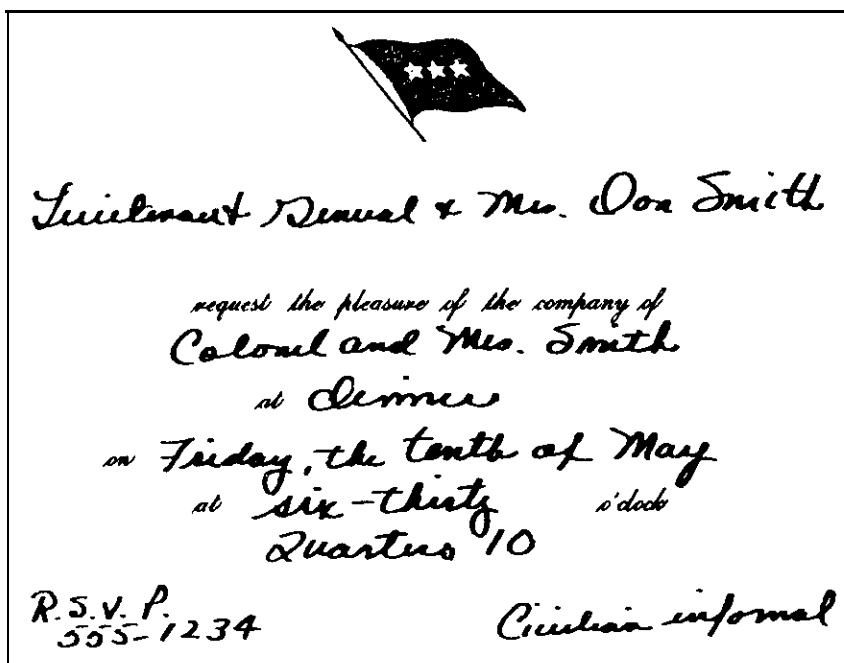 Lieutenant General & Mrs. Don Smith
request the pleasure of the company of
Colonel and Mrs. Smith
at dinner
on Friday, the tenth of May
at six-thirty o'clock
Quarters 10
R.S.V.P.
555-1234
Civilian infomal